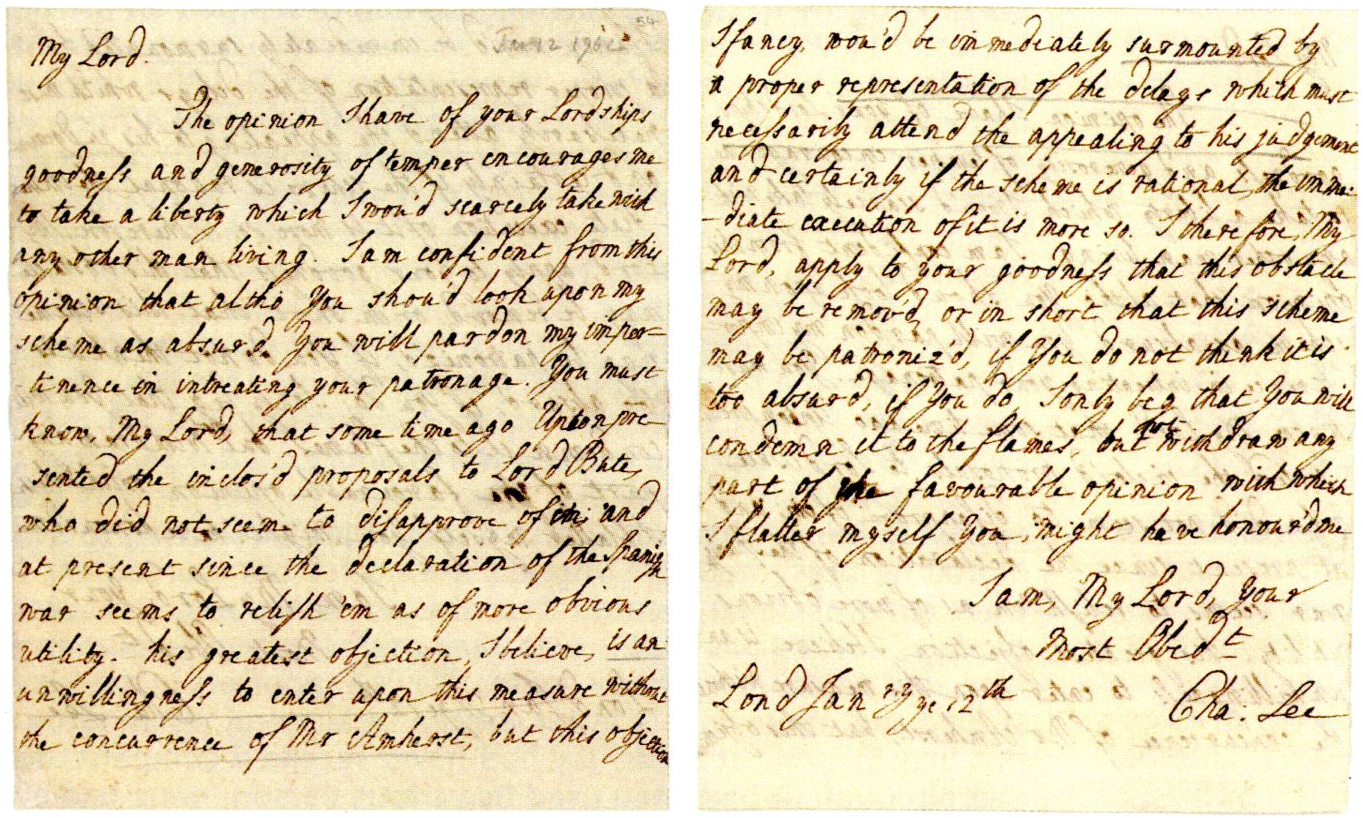 54
Jan 12 1762
My Lord.
The opinion I have of your Lordships
goodness and generosity of temper encourages me
to take a liberty which I wou'd scarcely take with
any other man living. I am confident from this
opinion that altho You shou'd look upon my
scheme as absurd, You will pardon my imper-
tinence in intreating your patronage. You must
know, My Lord, that some time ago Upton pre-
sented the inclos'd proposals to Lord Bute,
who did not seem to disapprove of 'em, and
at present since the declaration of the Spanish
war seems to relish 'em as of more obvious
utility. his greatest objection, I believe, is an
unwillingness to enter upon this measure without
the concurrence of Mr Amherst, but this objection
I fancy wou'd be immediately surmounted by
a proper representation of the delays which must
necessarily attend the appealing to his judgement
and certainly if the scheme is rational, the imme-
-diate execution of it is more so. I therefore, My
Lord, apply to your goodness that this obstacle
may be remov'd, or in short that this scheme
may be patroniz'd, if You do not think it is
too absurd, if You do I only beg that You will
condemn it to the flames, but not withdraw any
part of the favourable opinion with which
I flatter myself You might have honourd me
I am, My Lord, Your
Most Obedt
Lond Janry ye 12th
Cha. Lee